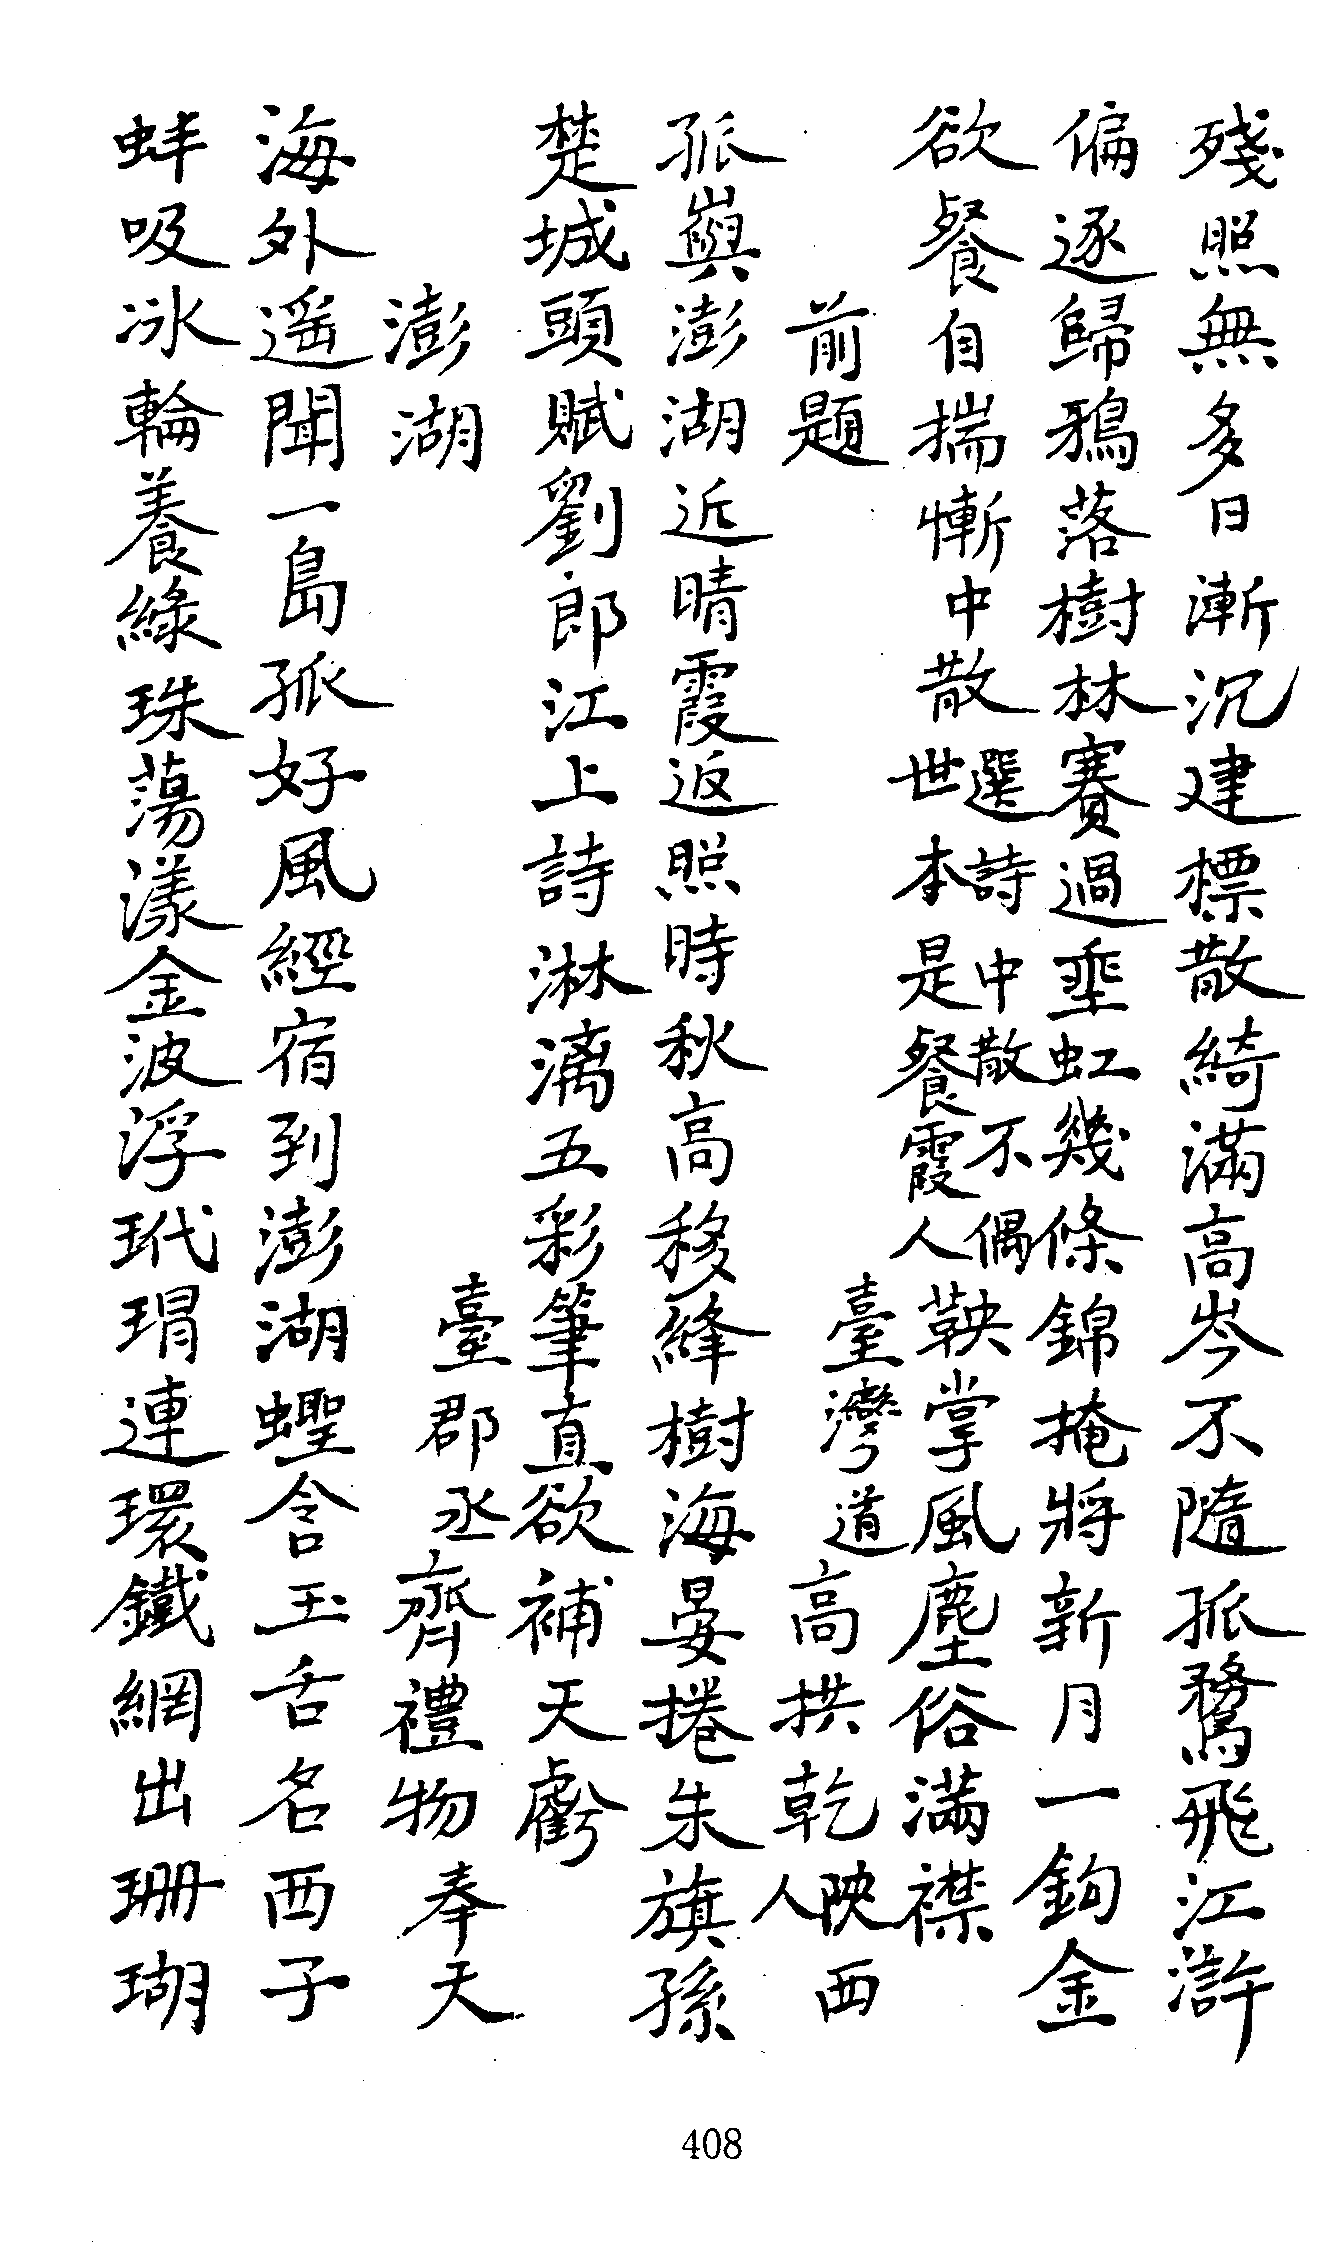 殘照無多日漸沉建標散綺滿高岑不隨孤鶩飛江滸
偏逐歸鴉落樹林賽過垂虹幾條錦掩將新月一鉤金
欲餐自揣慚中散選詩中散不偶世本是餐霞人鞅掌風塵俗滿襟
前題
臺灣道高拱乾陝西人
孤嶼澎湖近晴霞返照時秋高移絳樹海晏捲朱旗孫
楚城頭賦劉郎江上詩淋漓五彩筆直欲補天虧
澎湖
臺郡丞齊禮物奉天
海外遥聞一島孤好風經宿到澎湖蟶含玉舌名西子
蚌吸冰輪養綠珠蕩漾金波浮玳瑁連環鐵網出珊瑚
408